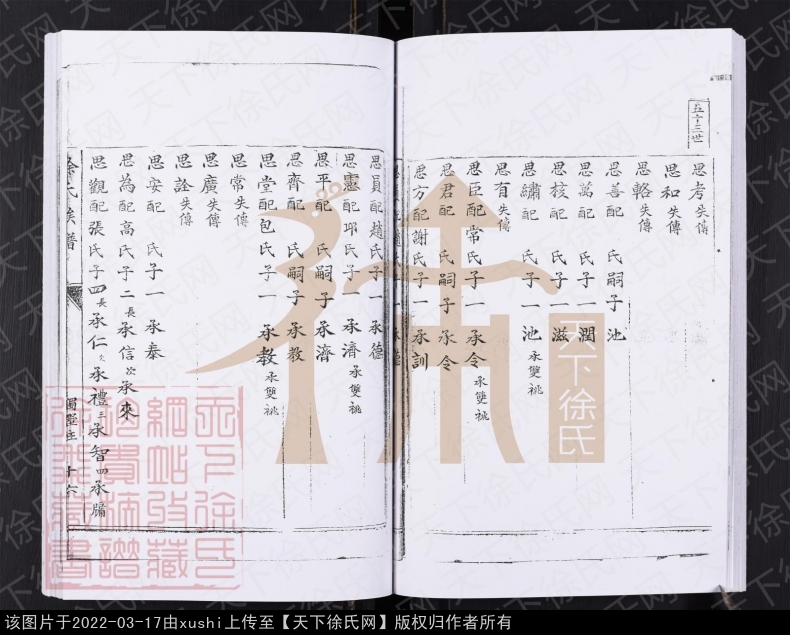 五十三世
思考失傳
思和失傳
思輅失傳
思善配 氏嗣子 池
思萬配 氏子一 潤
思核配 氏子一 滋
思繡配 氏子一 池 承雙祧
思有失傳
思臣配常氏子一 承令 承雙祧
思君配 氏嗣子 承令
思方配謝氏子一 承訓
思員配趙氏子一 承德
思靈配邱氏子一 承濟 承雙祧
思平配 氏嗣子 承濟
思齊配 氏嗣子 承教
思堂配包氏子一 承教 承雙祧
思常失傳
思廣失傳
思詮失傳
思安配 氏子一 承泰
思為配高氏子二 長承信 次承來
思觀配張氏子四 長承仁 次承禮 三承智 四承牖
徐氏族譜
十六
天下徐氏
天下徐氏网
该图片于2022-03-17由xushi上传至【天下徐氏网】版权归作者所有